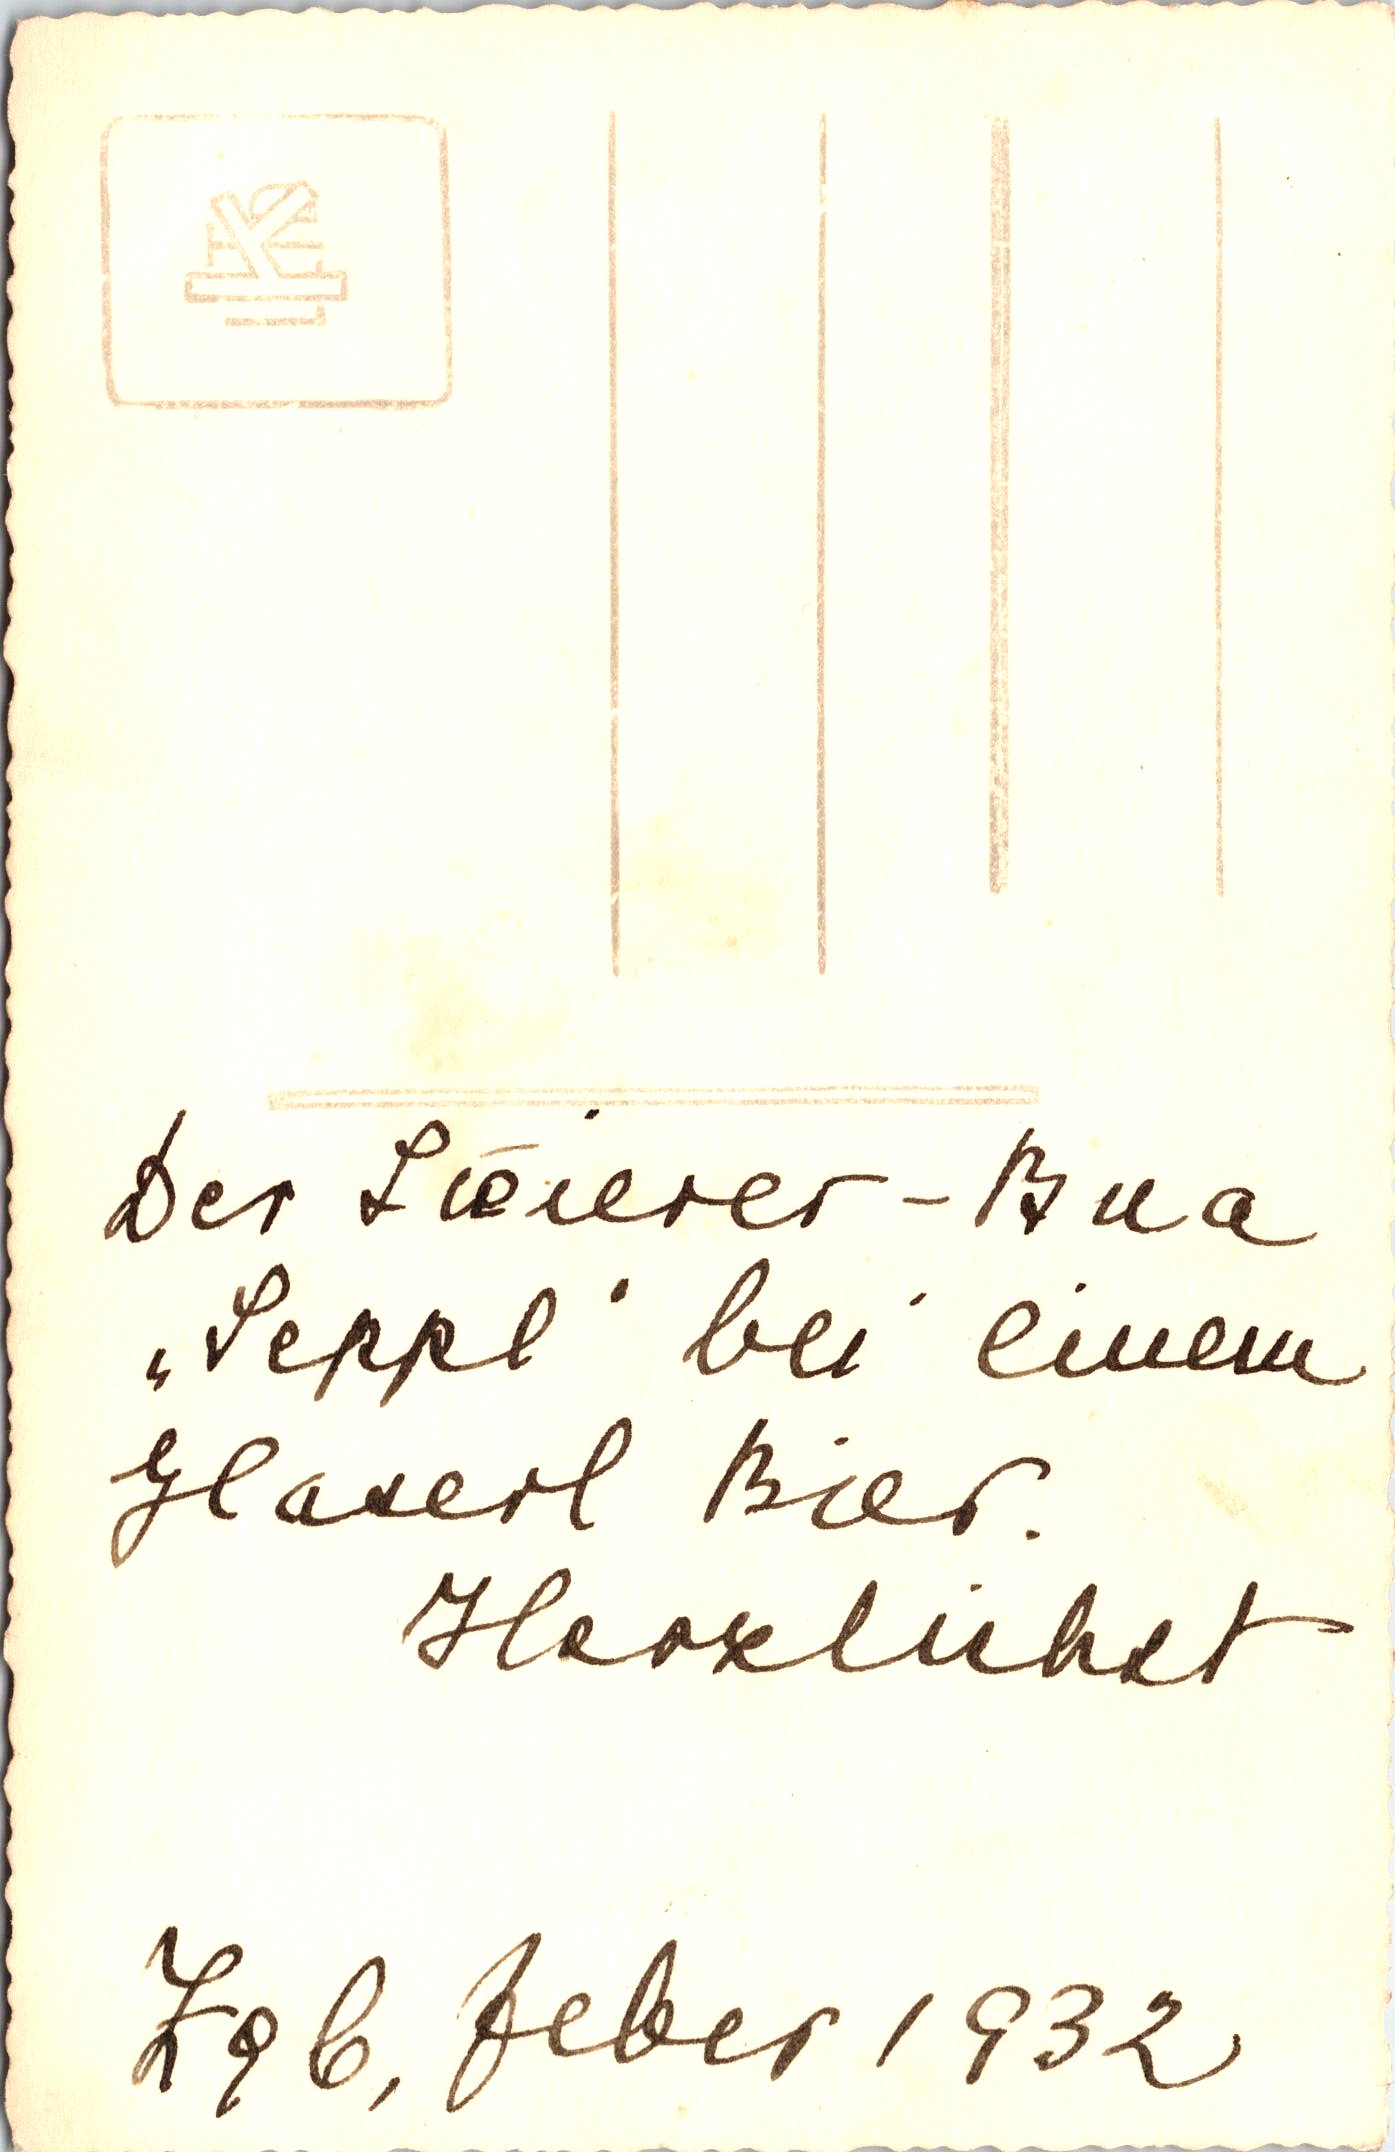 Der Steierer-Bua
„Seppl“ bei einem
Glaserl Bier.
Herzlichst
Zgb, Feber 1932